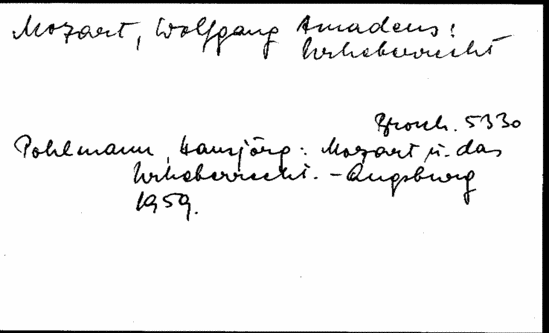 Mozart, Wolfgang Amadeus:
Urheberrecht
Brosch. 5330
Pohlmann, Hansjörg: Mozart u. das
Urheberrecht. - Augsburg
1959.